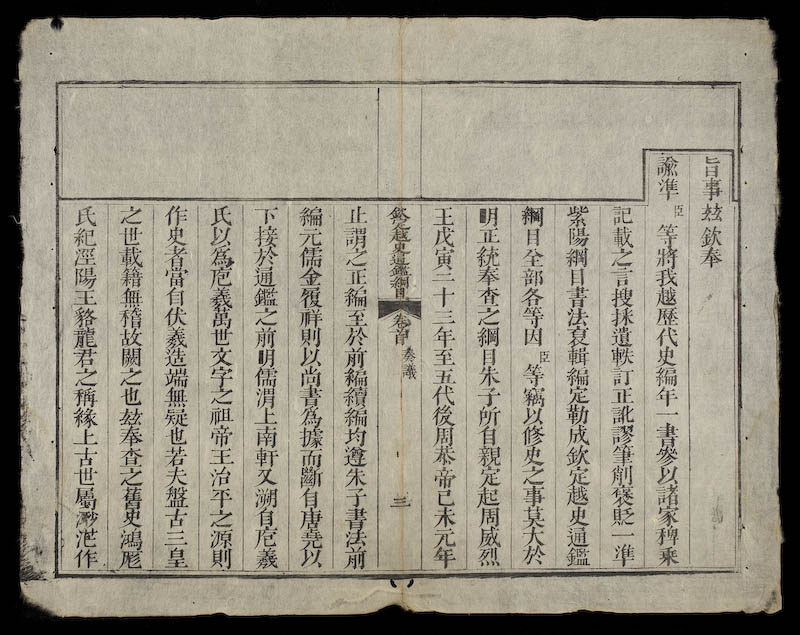 旨事玆欽奉
諭準臣等將我越歷代史編年一書參以諸家稗乗
記載之言搜採遺軼訂正訛謬筆削褒貶一準
紫陽綱目書法裒輯編定勒成欽定越史通鑑
綱目全部各等因臣等竊以修史之事莫大於
明正統奉查之綱目朱子所自親定起周威烈
王戊寅二十三年至五代後周恭帝己未元年
欽定越史通鑑綱目 卷首 奏議 三
止謂之正編至於前編續編均遵朱子書法前
編元儒金履祥則以尚書爲據而斷自唐堯以
下接於通鑑之前明儒渭上南軒又溯自庖羲
氏以爲庖羲萬世文字之祖帝王治平之源則
作史者當自伏羲造端無疑也若夫盤古三皇
之世載籍無稽故闕之也玆奉查之舊史鴻厖
氏紀涇陽王貉龍君之稱緣上古世屬渺茫作